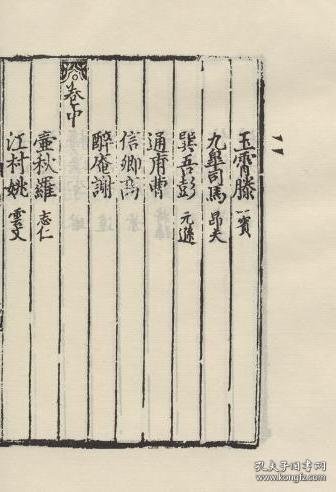 玉霄滕 一賓
九臯司馬 昂夫
巽吾彭 元遜
通甫曹
信卿高
醉庵謝
卷中
壺秋羅 志仁
江村姚 雲文
孔夫子旧书网
www.kongfz.com